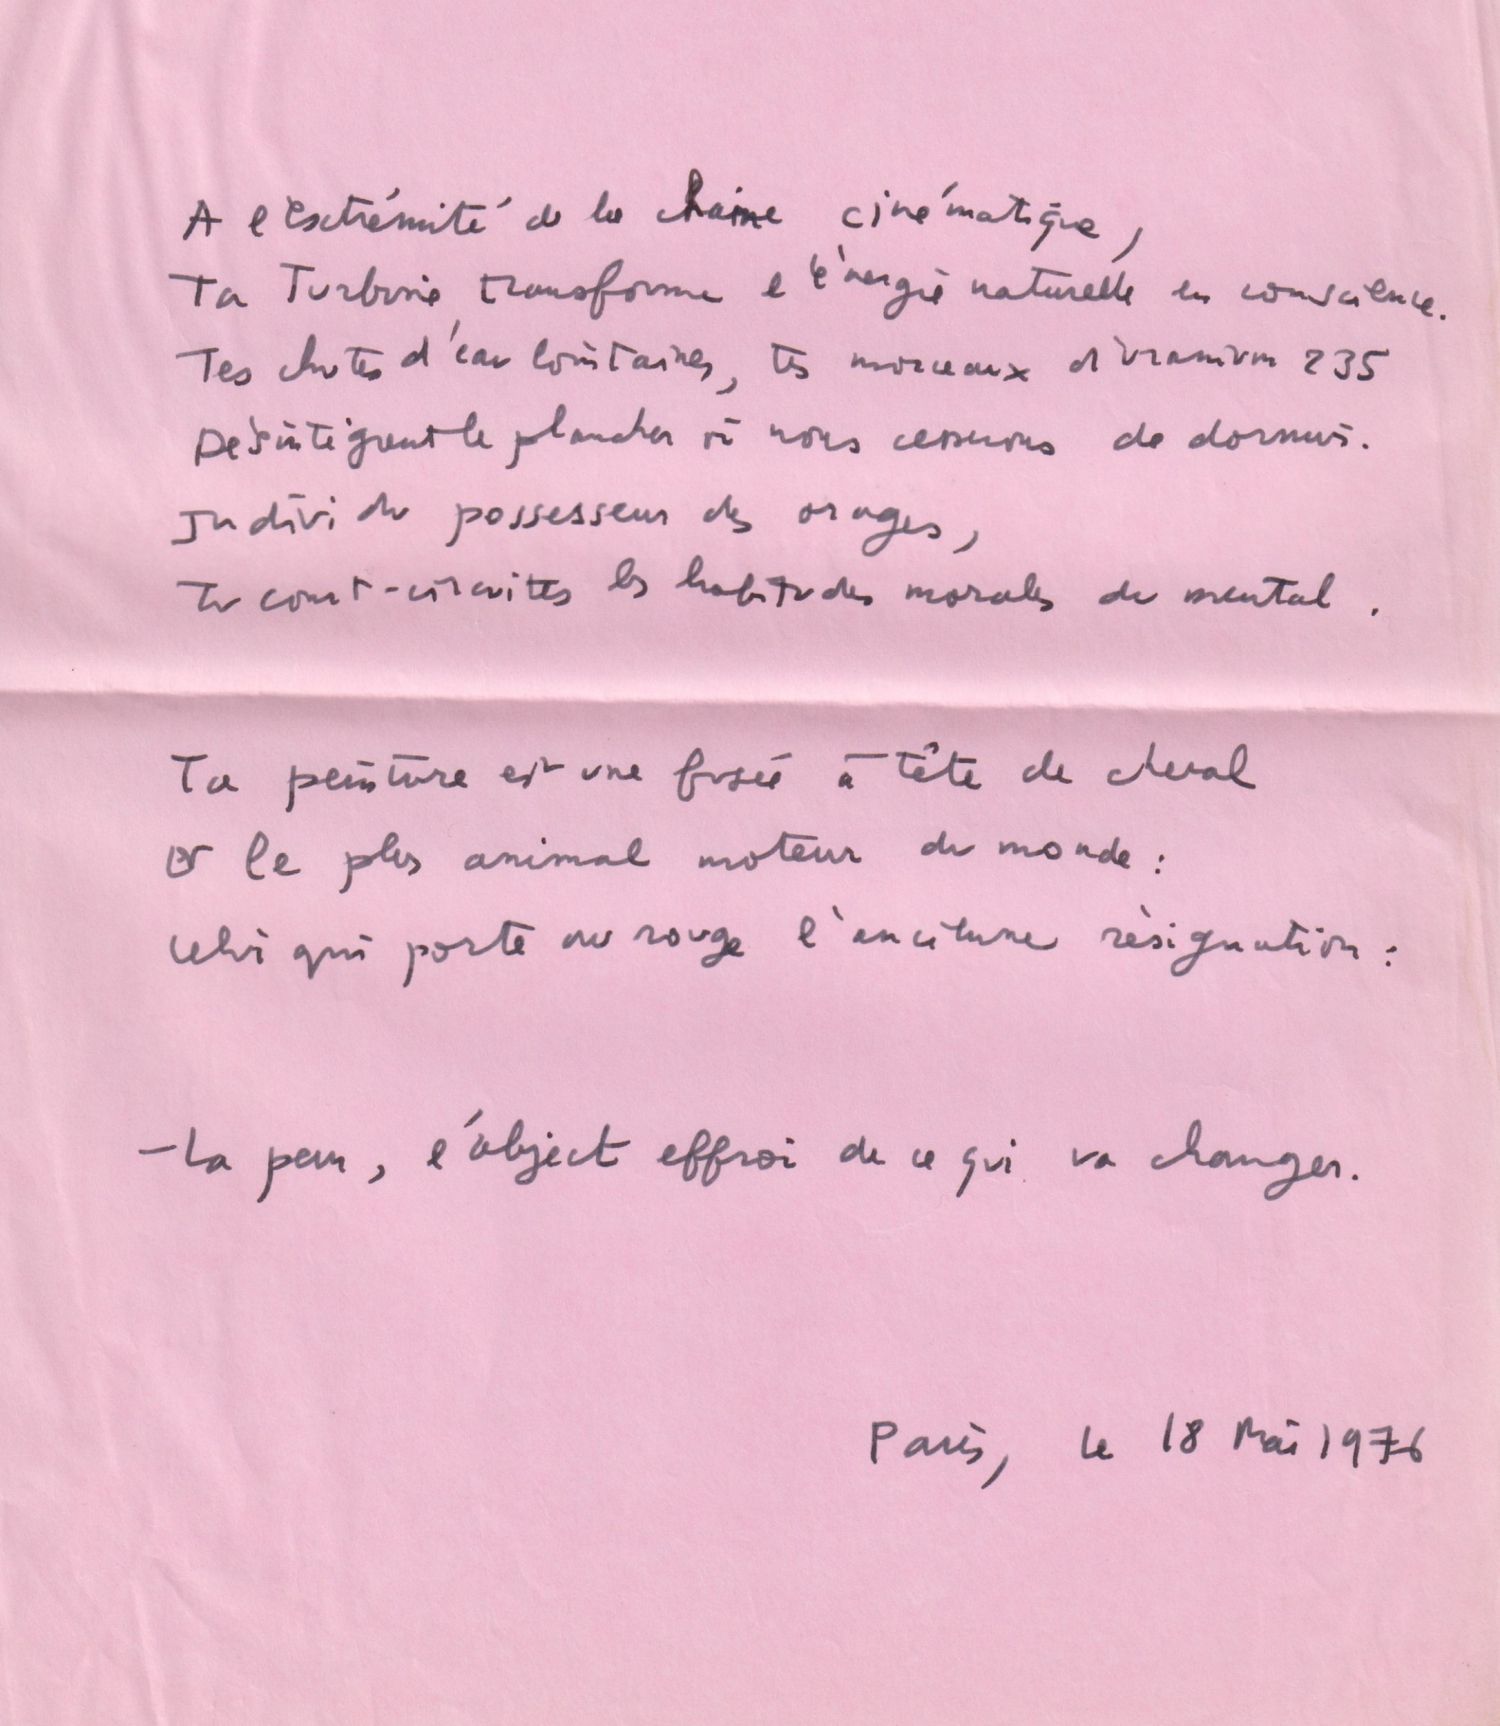 A l'extrémité de la chaine cinématique,
Ta Turbine transforme l'énergie naturelle en conscience.
Tes chutes d'eau lointaines, tes morceaux d'uranium 235
Désintègrent le plancher où nous cessions de dormir.
Individu possesseur des orages,
Tu court-circuites les habitudes morales du mental.
Ta peinture est une fusée à tête de cheval
Et le plus animal moteur du monde :
Celui qui porte au rouge l'ancienne résignation :
- La peur, l'abject effroi de ce qui va changer.
Paris, le 18 Mai 1976